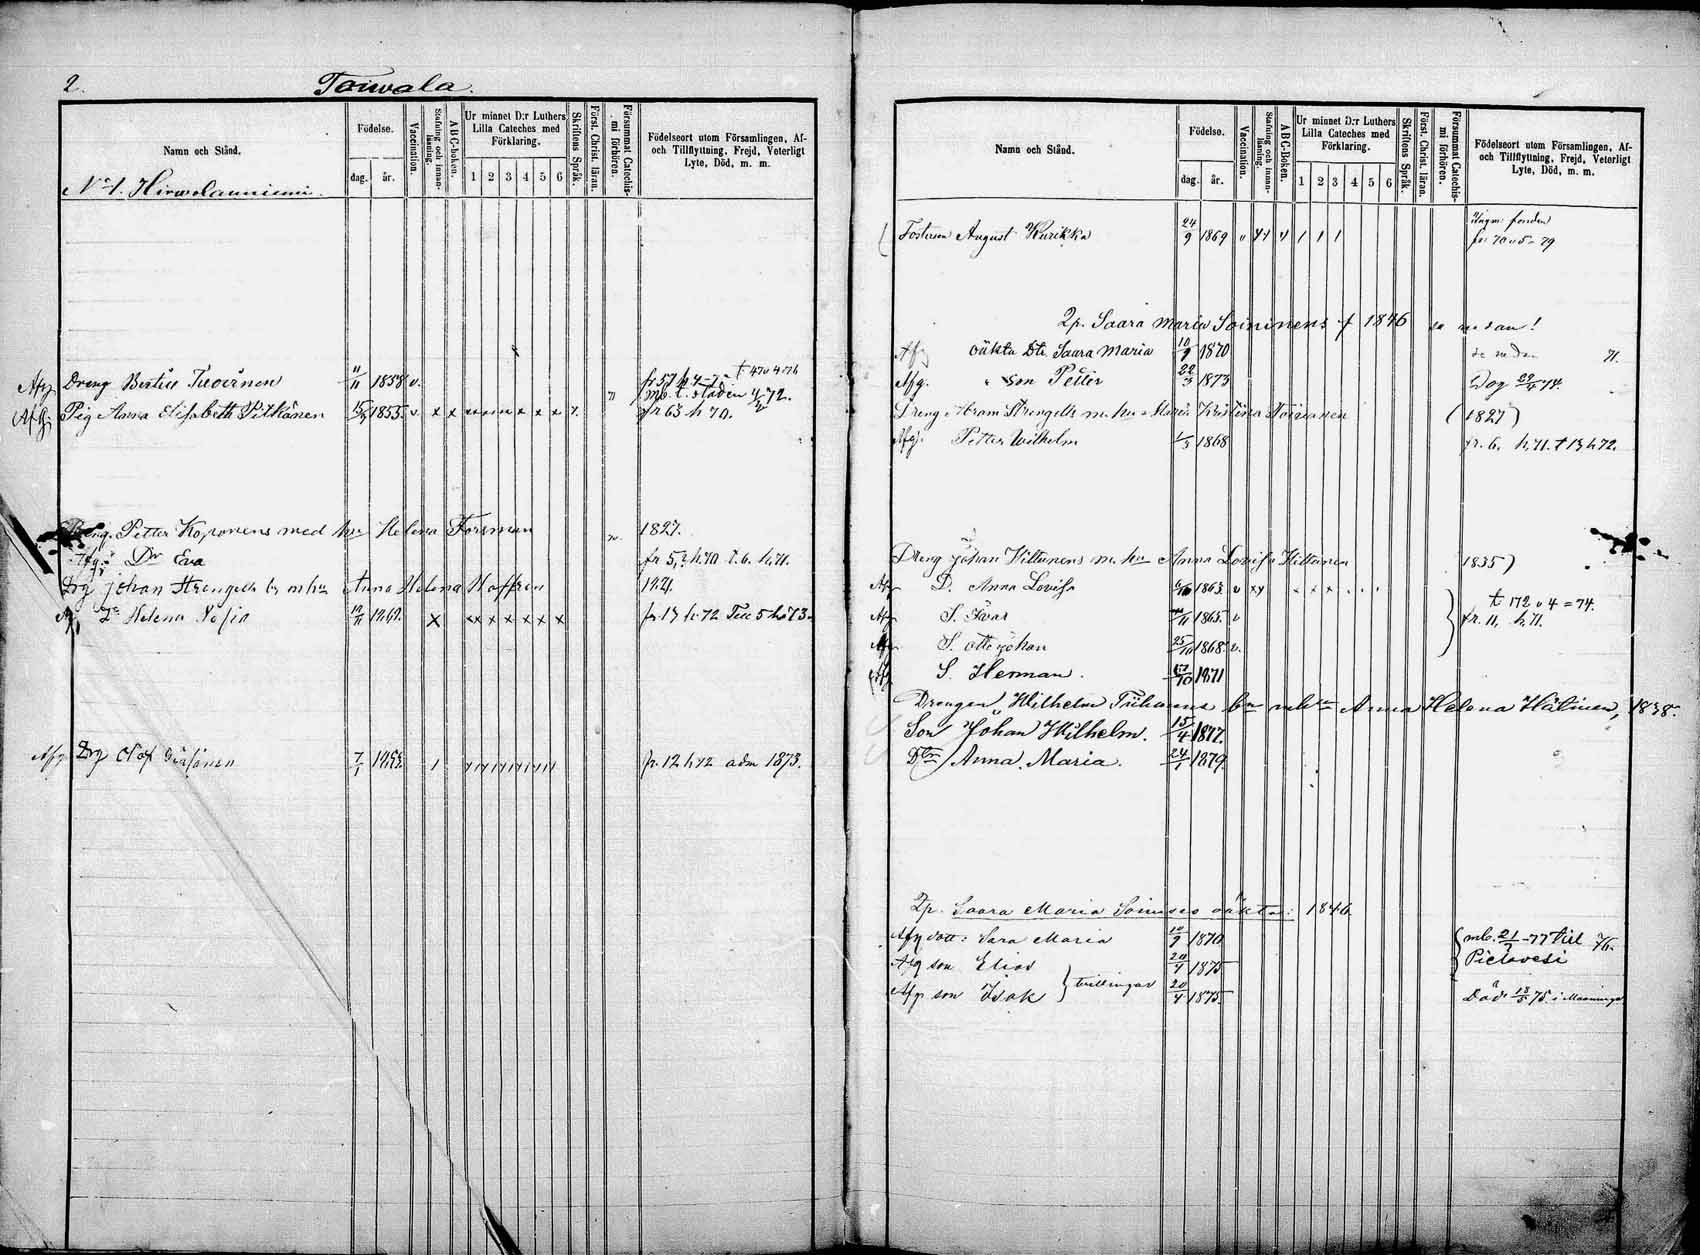 2.
Toiwala.
Namn och Stånd.
Födelse.
dag. år.
Vaccination.
Stafning och innanläsning.
ABC-boken.
Ur minnet D:r Luthers Lilla Cateches med Förklaring.
1 2 3 4 5 6
Skriftens Språk.
Först. Christ. läran.
Försummat Catechismi förhören.
Födelseort utom Församlingen, Af- och Tillflyttning, Frejd, Veterligt Lyte, Död, m. m.
No 1. Hirwolanniemi.
Afg Dreng Bertill Tuovinen 11/11 1858 v.
Pig Anna Elisabeth Pitkänen 1853. v. x x x x x x. fr 63 h 70.
Dreng. Petter Koponens med hu Helena Forsman 1827.
Afg. Dr Eva fr 5, h. 70 t. 6. h. 71.
Drg Johan Strengells br m hu Anna Helena Hoffren 1821.
Dr Helena Sofia x x x x x x x fr 17 h 72 Till 5 h 73.
Afg Drg Olof 7/1 fr. 12 h 72 adm 1873.
Namn och Stånd.
Födelse.
dag. år.
Vaccination.
Stafning och innanläsning.
ABC-Boken.
Ur minnet D:r Luthers Lilla Cateches med Förklaring.
1 2 3 4 5 6
Skriftens Språk.
Först. Christ. läran.
Försummat Catechismi förhören.
Födelseort utom Församlingen, Af- och Tillflyttning, Frejd, Veterligt Lyte, Död, m. m.
Fosterson August Kurikka 24/9 1869 v 1 1 1
Ip. Saara Maria Soininens f 1846 se nedan!
Afg oäkta Dtr Saara Maria 10/9 1870 se nedan 71.
Afg. " son Petter 22/3 1873 Dog 74.
Dreng Abram Strengells m. hu Maria Kristina Toivanen (1827)
Afg. Petter Wilhelm 1/3 1868 fr. 6. h. 71. t 13 h 72.
Dreng Johan Hiltunens m. hu Anna Lovisa Hiltunen 1835)
Afg D. Anna Lovisa 1863. v x x x x x t 172 v 4 = 74.
Afg S. Ivar 1865. v fr. 11, h. 71.
Afg S. Otto Johan 25/10 1868. v.
Afg S. Herman. 1871
Drengen Wilhelm bn m hu Anna Helena Hätinen, 1838.
Son Johan Wilhelm. 15/4 1877.
Dtr Anna Maria. 24/1 1879.
Ip. Saara Maria Soinises oäkta: 1846
Afg dott: Sara Maria 10/9 1870 mb. 21/7 -77 till Pielavesi 76.
Afg son Elias 20/4 1875
Afg son Isak tvillingar 20/4 1875. Död 75. i Maaninga